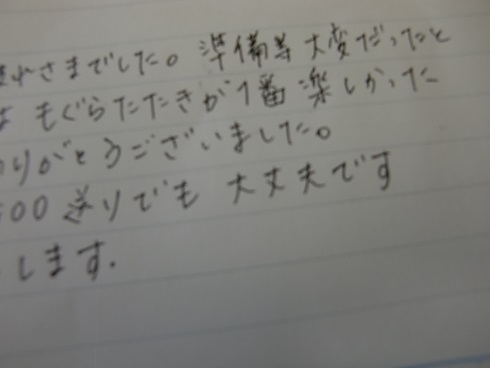 れさまでした。準備等大変だったと
は もぐらたたきが1番楽しかった
りがとうございました。
00送りでも 大丈夫です
します.